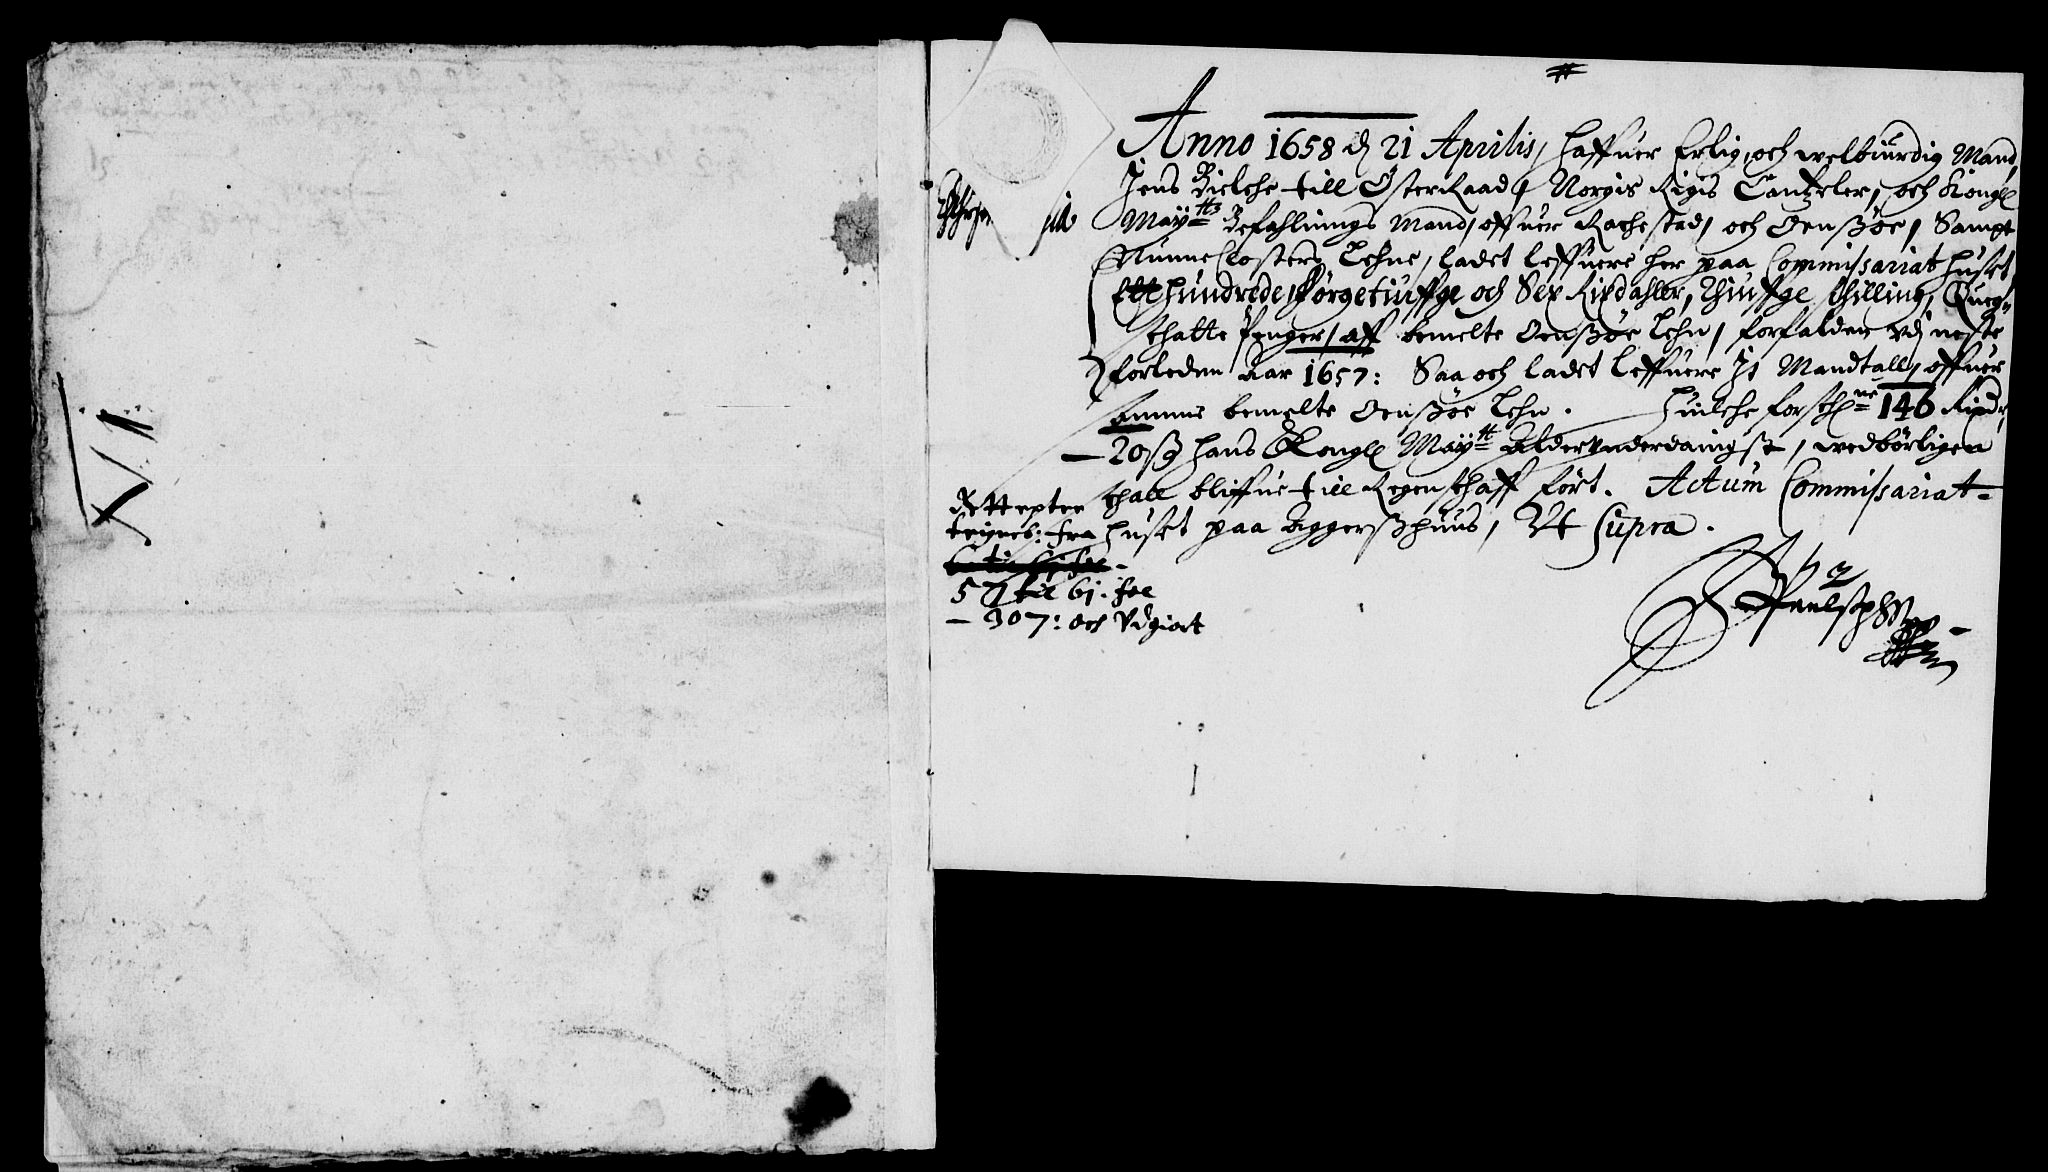 Anno 1658 dj 21 Aprilis, haffuer Erlig, och welbiurdig Mand,
Jens Bielche till ÖsterRaad, Norgis Rigis Cantzeler, och Kongl
Maÿtts Befahlnings Mand, offuer Rachestad, och Onsßöe, Sampt
NunneClosters Lehne, ladet leffuere her paa Commissariathuset
Etthundrede, Förgetiuffge och Sex Rixdahler, Thiuffge schilling, Queg=
schatte Penger, aff bemelte Onsßöe Lehn, forfalden vdj neste
forleden Aar 1657: Saa och ladet Leffuere It Mandtall, offuer
samme bemelte Onsßöe Lehn. Huilche forschne 146 Rixdr,
— 20 ß hans Kongl Maÿtt Alderunderdanigst, wedbörligen
schall bliffue till Regenschaff fört. Actum Commissariat=
huset paa Aggersßhuus, Ut Supra.
fra
57 til 61. fol
— 307: och Vdgiort